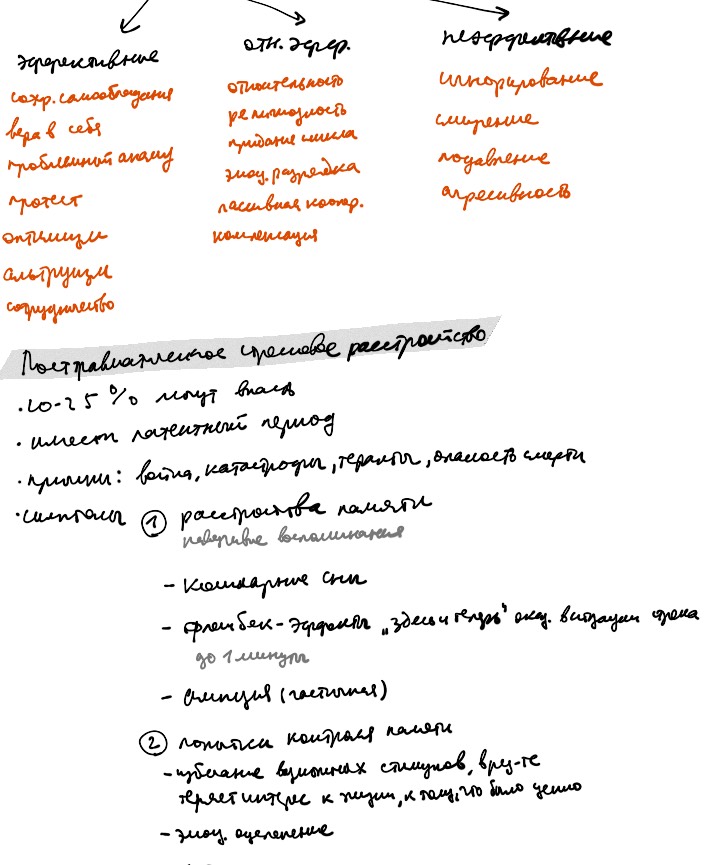 эффективные
сохр. самообладания
вера в себя
проблемный анализ
протест
оптимизм
альтруизм
сотрудничество
отн. эффер.
относительность
религиозность
придание смысла
эмоц. разрядка
пассивная коопер.
компенсация
неэффективные
игнорирование
смирение
подавление
агресивность
Посттравматическое стрессовое расстройство
· 10-25 % могут впасть
· имеет латентный период
· причины: война, катастрофы, теракты, опасность смерти
· симптомы ① расстройства памяти
неверные воспоминания
- Кошмарные сны
- флешбек-эффекты „здесь и теперь" оказ. в ситуации страха
до 1 минуты
- Амнезия (частичная)
② попытки контроля памяти
- избегание стимулов, в рез-те
теряет интерес к жизни, к тому, что было ценно
- эмоц. оцепенение